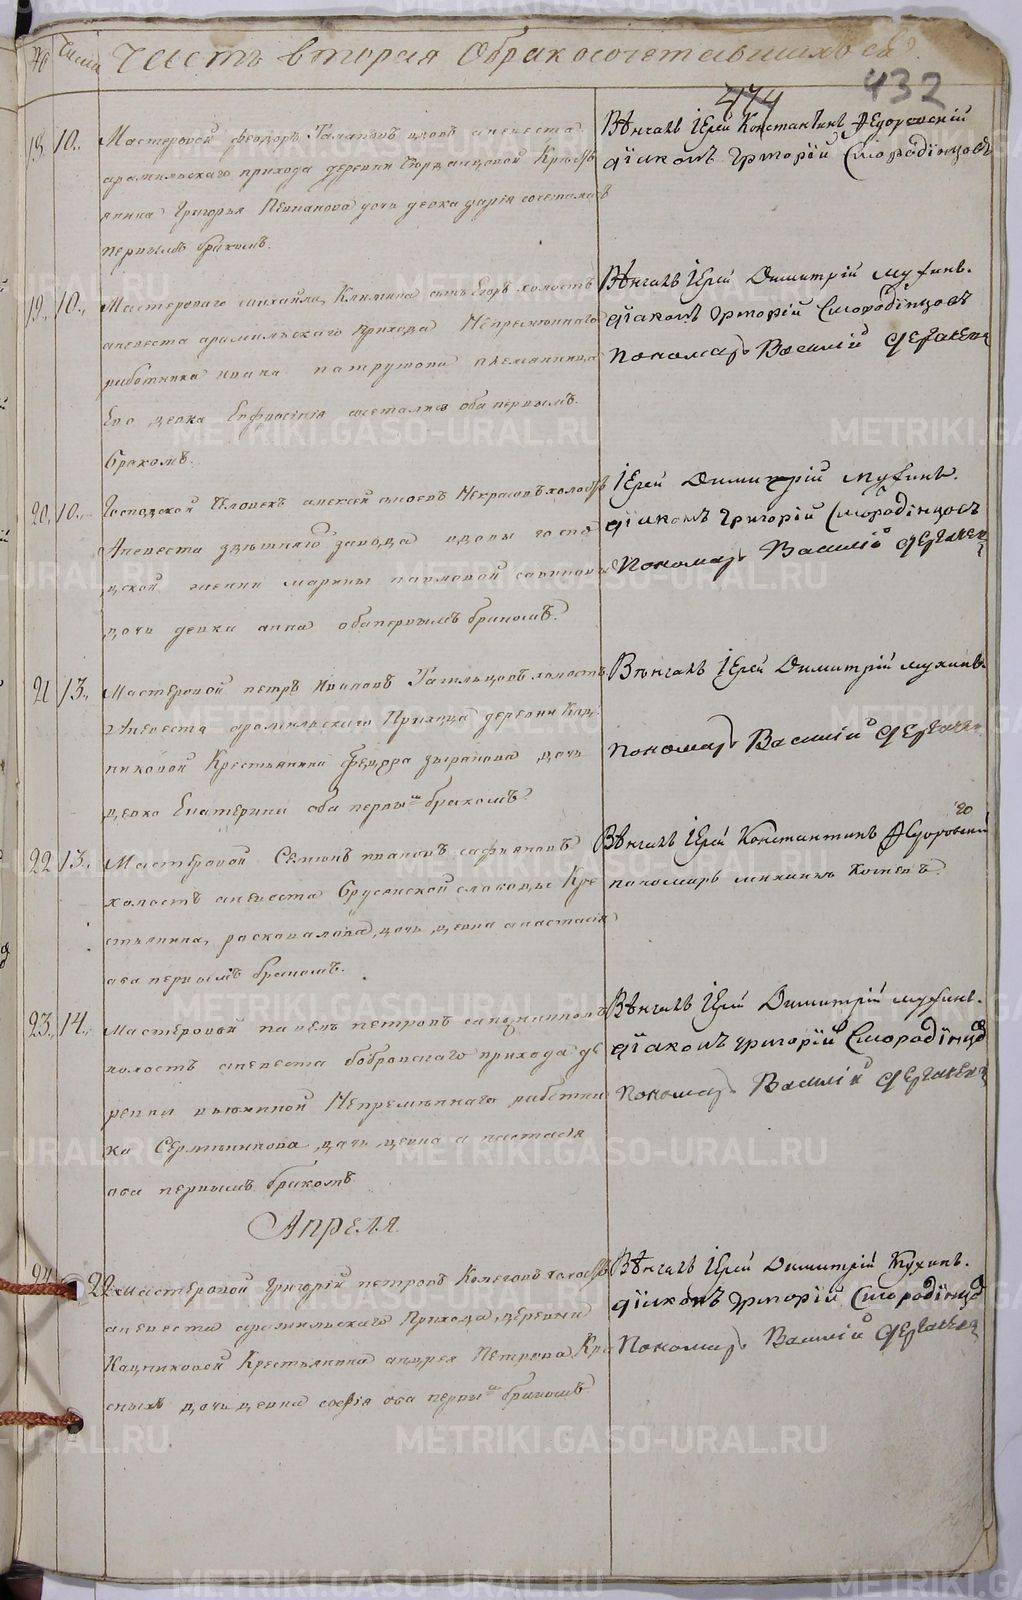 № Числа Часть вторая Обракосочетавшихъся
474 432
18. 10. Мастеровой феодоръ Галактионовъ вдовъ аневеста
арамильскаго прихода деревни Кресть
янина Григорья дочь девка дарiя сочетался
первымъ бракомъ.
Вѣнчалъ Iерей Константинъ Федоровскiй
дiаконъ григорiй Смородiнцовъ
19. 10. Мастероваго михайла Климина сынъ Егоръ холостъ
аневеста арамильскаго Прихода Непременнаго
работника ивана патрушова племянница
Ево девка Ефросiнiя сочетались оба первымъ
бракомъ.
Вѣнчалъ Iерей Димитрiй мухинъ.
дiаконъ григорiй Смородiнцовъ
пономарь Василiй
20. 10. Господской Человекъ алексей Некрасовъ холостъ
Аневеста здѣшняго завода вдовы госпо
дской женки марины павловой
дочь девка анна оба первымъ бракомъ.
Iерей Димитрiй мухинъ.
дiаконъ григорiй Смородiнцовъ
Пономарь Василiй
21 13. Мастеровой петръ Ивановъ Тагильцовъ холостъ
Аневеста арамильскаго Прихода деревни Кац
никовой Крестьянина Федора зырянова дочь
девка Екатерина оба первымъ бракомъ
Вѣнчалъ Iерей Димитрiй мухинъ.
пономарь Василiй
22 13. Мастеровой Семионъ ивановъ сафьяновъ
холостъ аневеста брусянской слободы Кре
стьянина, росковалова, дочь девка анастасiя
оба первымъ бракомъ.
Вѣнчалъ Iерей Константинъ Федоровскiй
пономарь
23. 14. Мастеровой павелъ петровъ сапожниковъ
холостъ аневеста бобровскаго прихода де
ревни вьюхиной Непремѣннаго работни
ка Сермяникова дочь девка анастасiя
оба первымъ бракомъ
Вѣнчалъ Iерей Димитрiй мухинъ.
дiаконъ григорiй Смородiнцовъ
пономарь Василiй
Апреля
24 22 Мастеровой Григорiй петровъ холостъ
аневеста арамильскаго Прихода, деревни
Кацниковой Крестьянина андрея Петрова Кра
сныхъ дочь девка софiя оба первымъ бракомъ
Вѣнчалъ Iерей Димитрiй Мухинъ.
дiаконъ григорiй Смородiнцовъ
Пономарь Василiй
METRIKI.GASO-URAL.RU